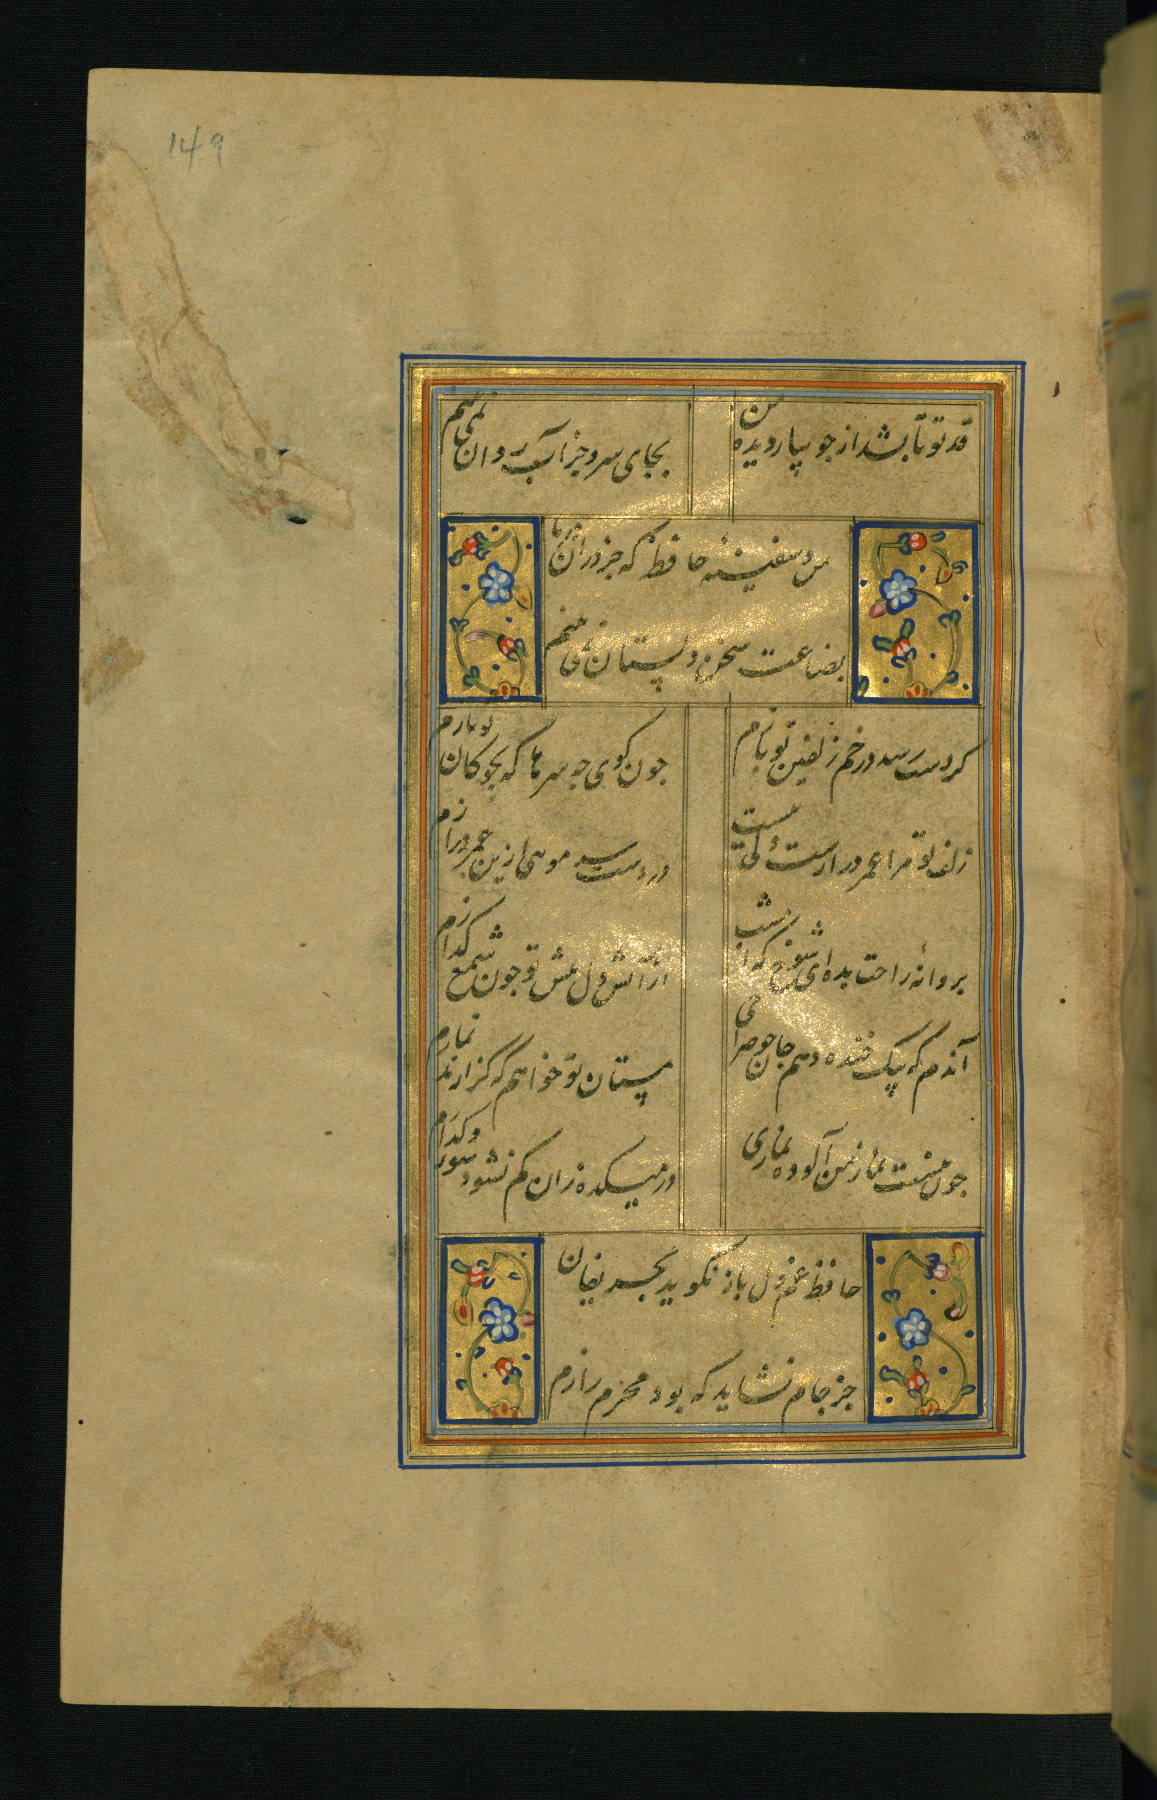 149
قد تو تا بشد از جویبار دیده من
بجای سرو جز آب روان نمی بینم
من و سفینهٔ حافظ که جز در این دریا
بضاعت سخن دلستان نمی بینم
کر دست رسد در خم زلفین تو بازم
جون کوی جه سرها که بجوکان تو بازم
زلف تو مرا عمر درازست ولی نیست
در دست سر مویی ازین عمر درازم
بروانهٔ راحت بده ای شمع که امشب
از آتش دل پیش تو جون شمع کدازم
آندم که بیک خنده دهم جان جو صراحی
مستان تو خواهم که کزارند نمازم
جون نیست نماز من آلوده نمازی
در میکده زان کم نشود سوز و کدازم
حافظ غم دل باز نکوید بحریفان
جز جام نشاید که بود محرم رازم